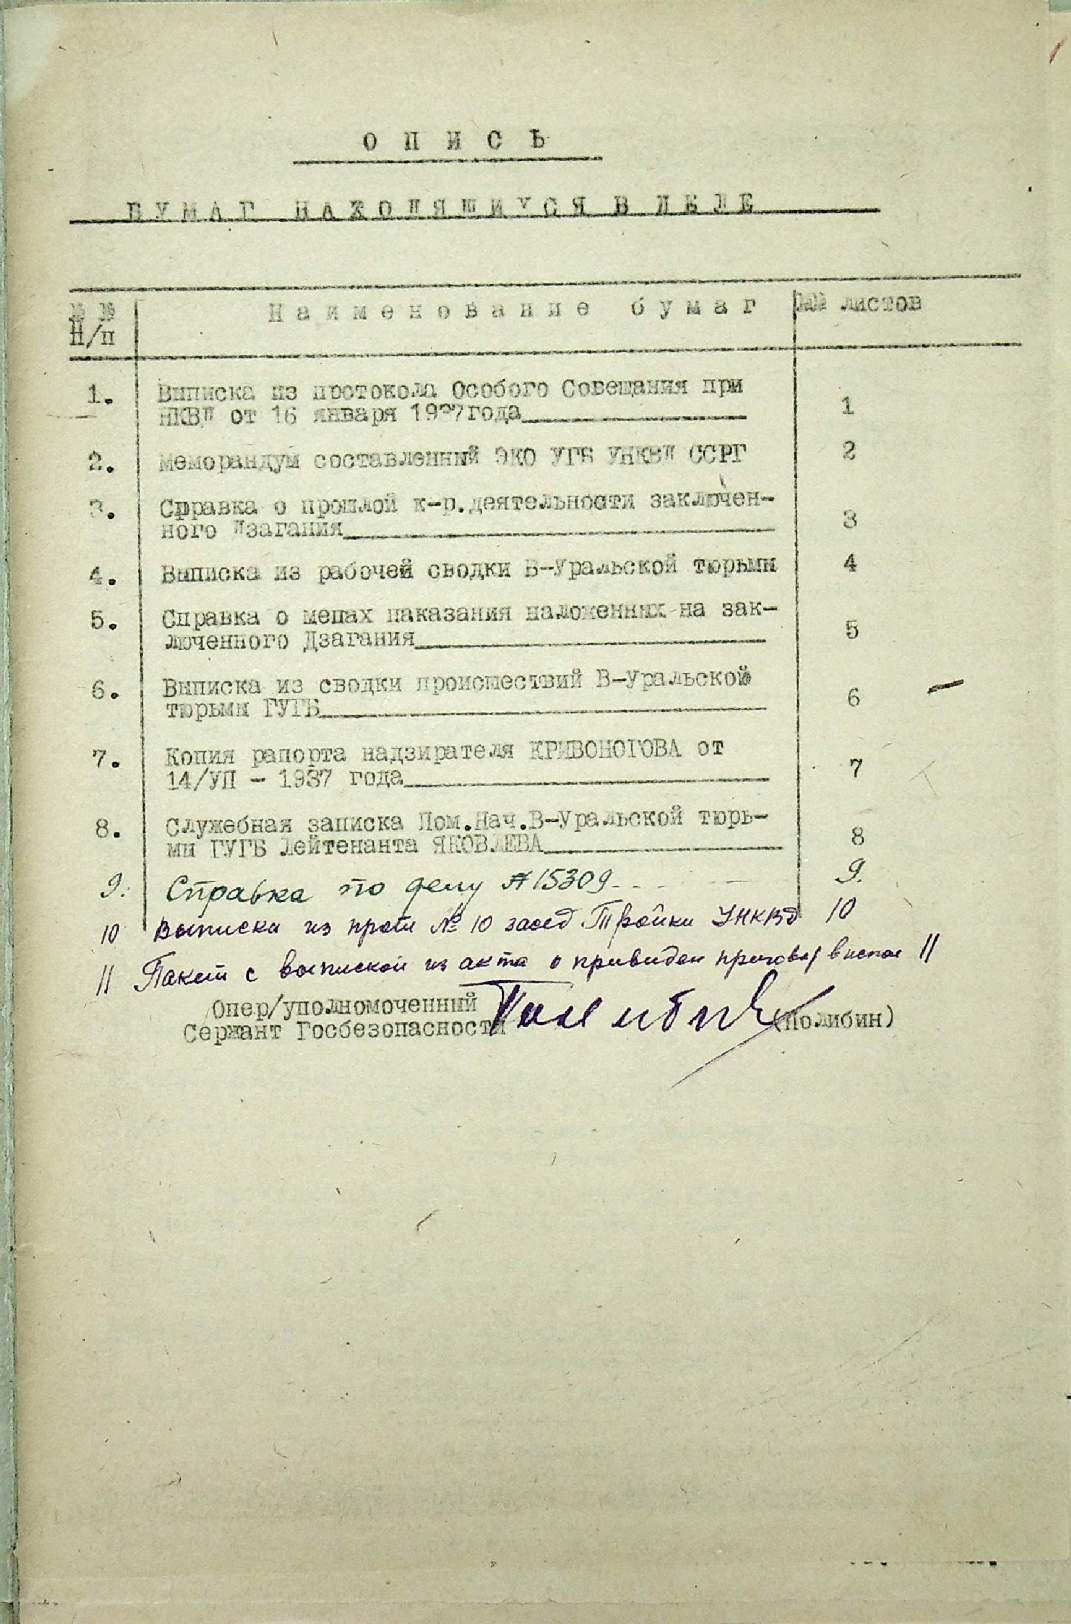 О П И С Ь
БУМАГ НАХОДЯЩИХСЯ В ДЕЛЕ
№ №
П/п
Наименование бумаг
№№ листов
1. Выписка из протокола Особого Совещания при
НКВД от 16 января 1937года 1
2. Меморандум составленный ЭКО УГБ УНКВД ССРГ 2
3. Справка о прошлой к-р.деятельности заключен-
ного Дзагания 3
4. Выписка из рабочей сводки В-Уральской тюрьмы 4
5. Справка о мерах наказания наложенных на зак-
люченного Дзагания 5
6. Выписка из сводки происшествий В-Уральской
тюрьмы ГУГБ 6
7. Копия рапорта надзирателя КРИВОНОГОВА от
14/УП - 1937 года 7
8. Служебная записка Пом.Нач.В-Уральской тюрь-
мы ГУГБ лейтенанта ЯКОВЛЕВА 8
9. Справка по делу № 15309 9.
10 Выписка из прот № 10 засед Тройки УНКВД 10
11 Пакет с выпиской из акта о приведен приговор в испол 11
Опер/уполномоченный
Сержант Госбезопасности Полибин (Полибин)